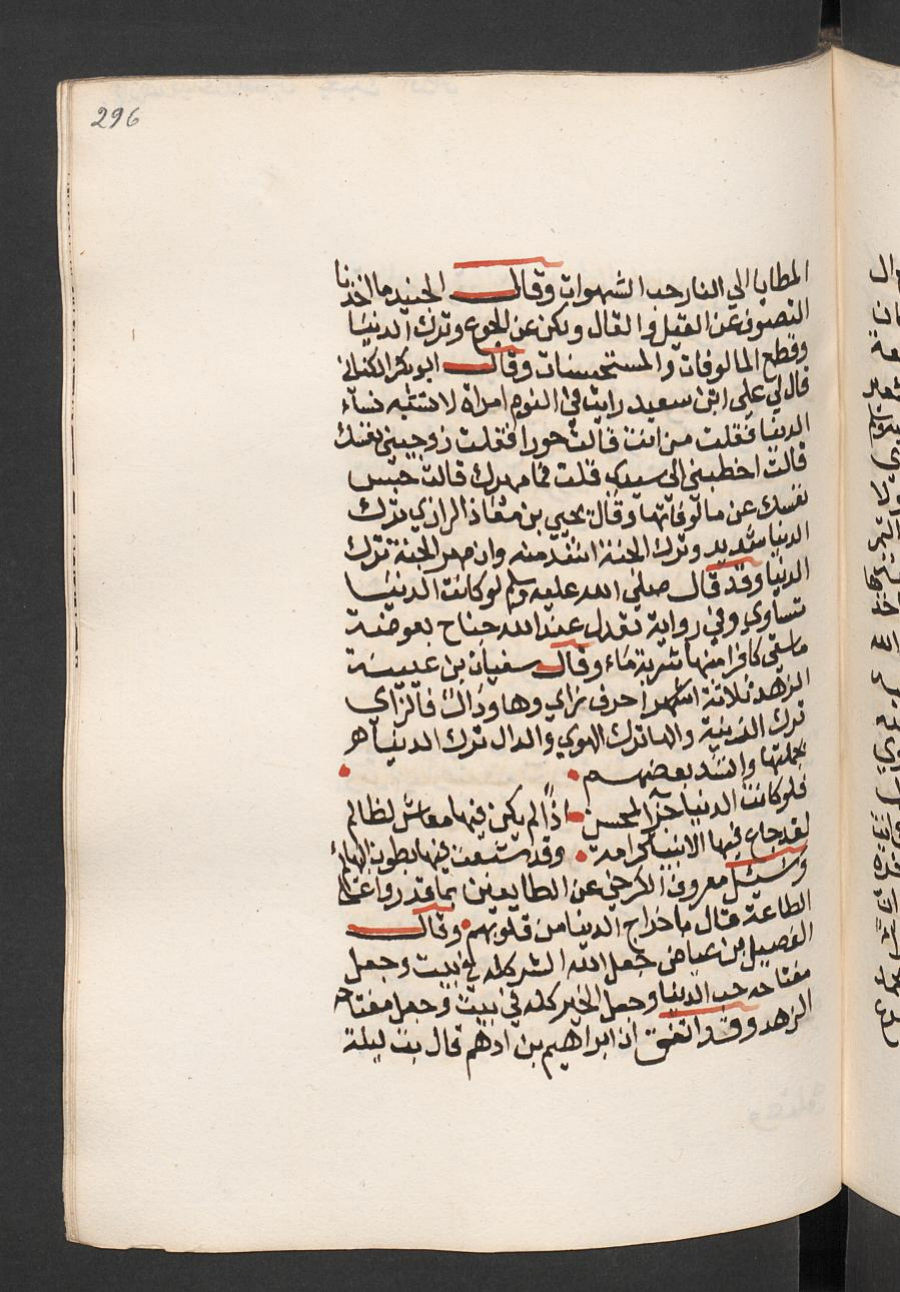 296
المطايا الي النار حب الشهوات وقال الجنيد ما اخذنا
التصوف عن القيل والقال ولكن عن الجوع وترك الدنيا
وقطع المالوفات والمستحسنات وقال ابو بكر الكتاني
قال لي علي ابن سعيد رايت في النوم امراة لا تشبه نساء
الدنيا فقلت من انت قالت حورا فقلت زوجيني نفسك
قالت اخطبني الي سيدي قلت فما مهرك قالت حبس
نفسك عن مالوفاتها وقال يحيي بن معاذ الرازي ترك
الدنيا شديد وترك الجنة اشد منه وان مهر الجنة ترك
الدنيا وقد قال صلي الله عليه وسلم لو كانت الدنيا
تساوي وفي رواية تعدل عند الله جناح بعوضة
ما سقي كافرا منها شربة ماء وقال سفيان بن عيينة
الزهد ثلاثة احرف زاي وها ودال فالزاي
ترك الزينة والها ترك الهوي والدال ترك الدنيا
بجملتها وانشد بعضهم
فلو كانت الدنيا جزآ لمحسن اذا لم يكن فيها معاش لظالم
لقد جاع فيها الانبيا كرامة وقد شبعت فيها بطون البهائم
وسئل معروف الكرخي عن الطايعين بما قدروا علي
الطاعة قال باخراج الدنيا من قلوبهم وقال
الفضيل بن عياض جعل الله الشر كله في بيت وجعل
مفتاحه حب الدنيا وجعل الخير كله في بيت وجعل مفتاحه
الزهد وقد اتفق ان ابراهيم بن ادهم قال بت ليلة